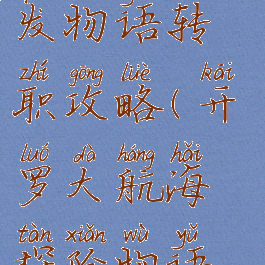 发物语转
zhí gōng lüè kāi
职攻略(开
luó dà háng hǎi
罗大航海
tàn xiǎn wù yǔ
探险物语